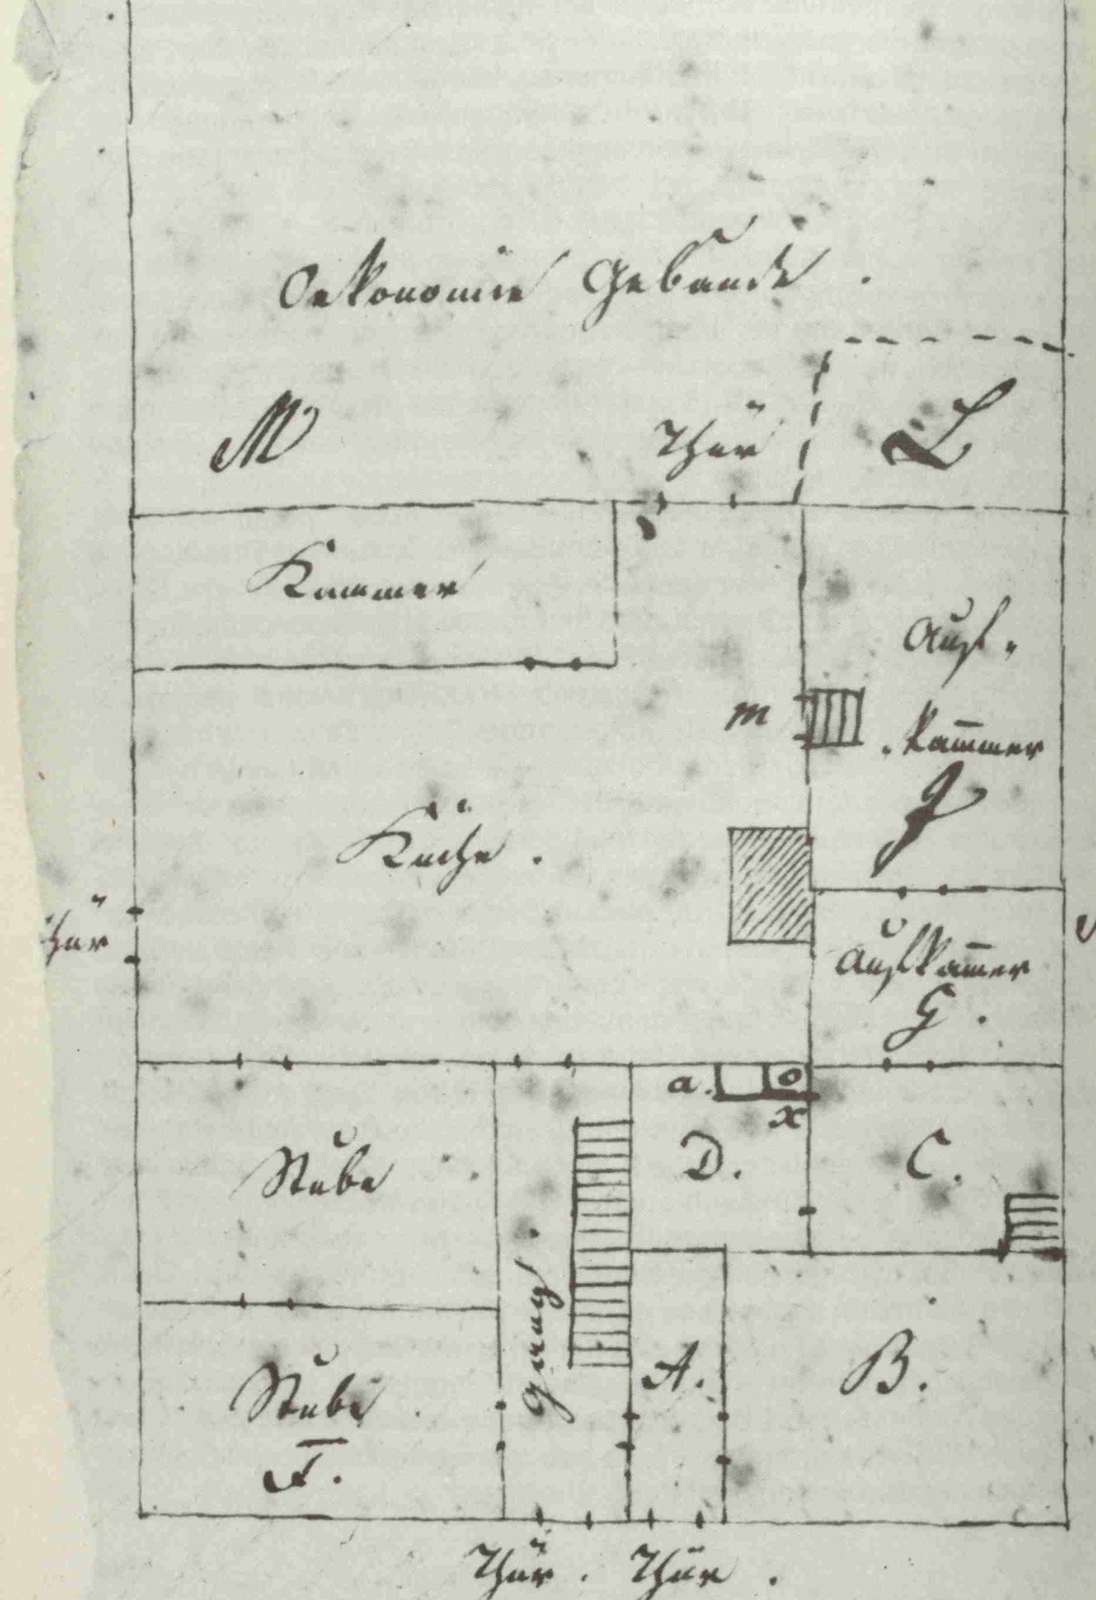 Oekonomie Gebäude.
M
Thür
L
Kammer
Auf-
kam̅mer
m
J
Küche.
Thür
Aufkam̅er
G.
a.
o
x
D.
C.
Stube
Gang.
A.
B.
Stube
F.
Thür. Thür.